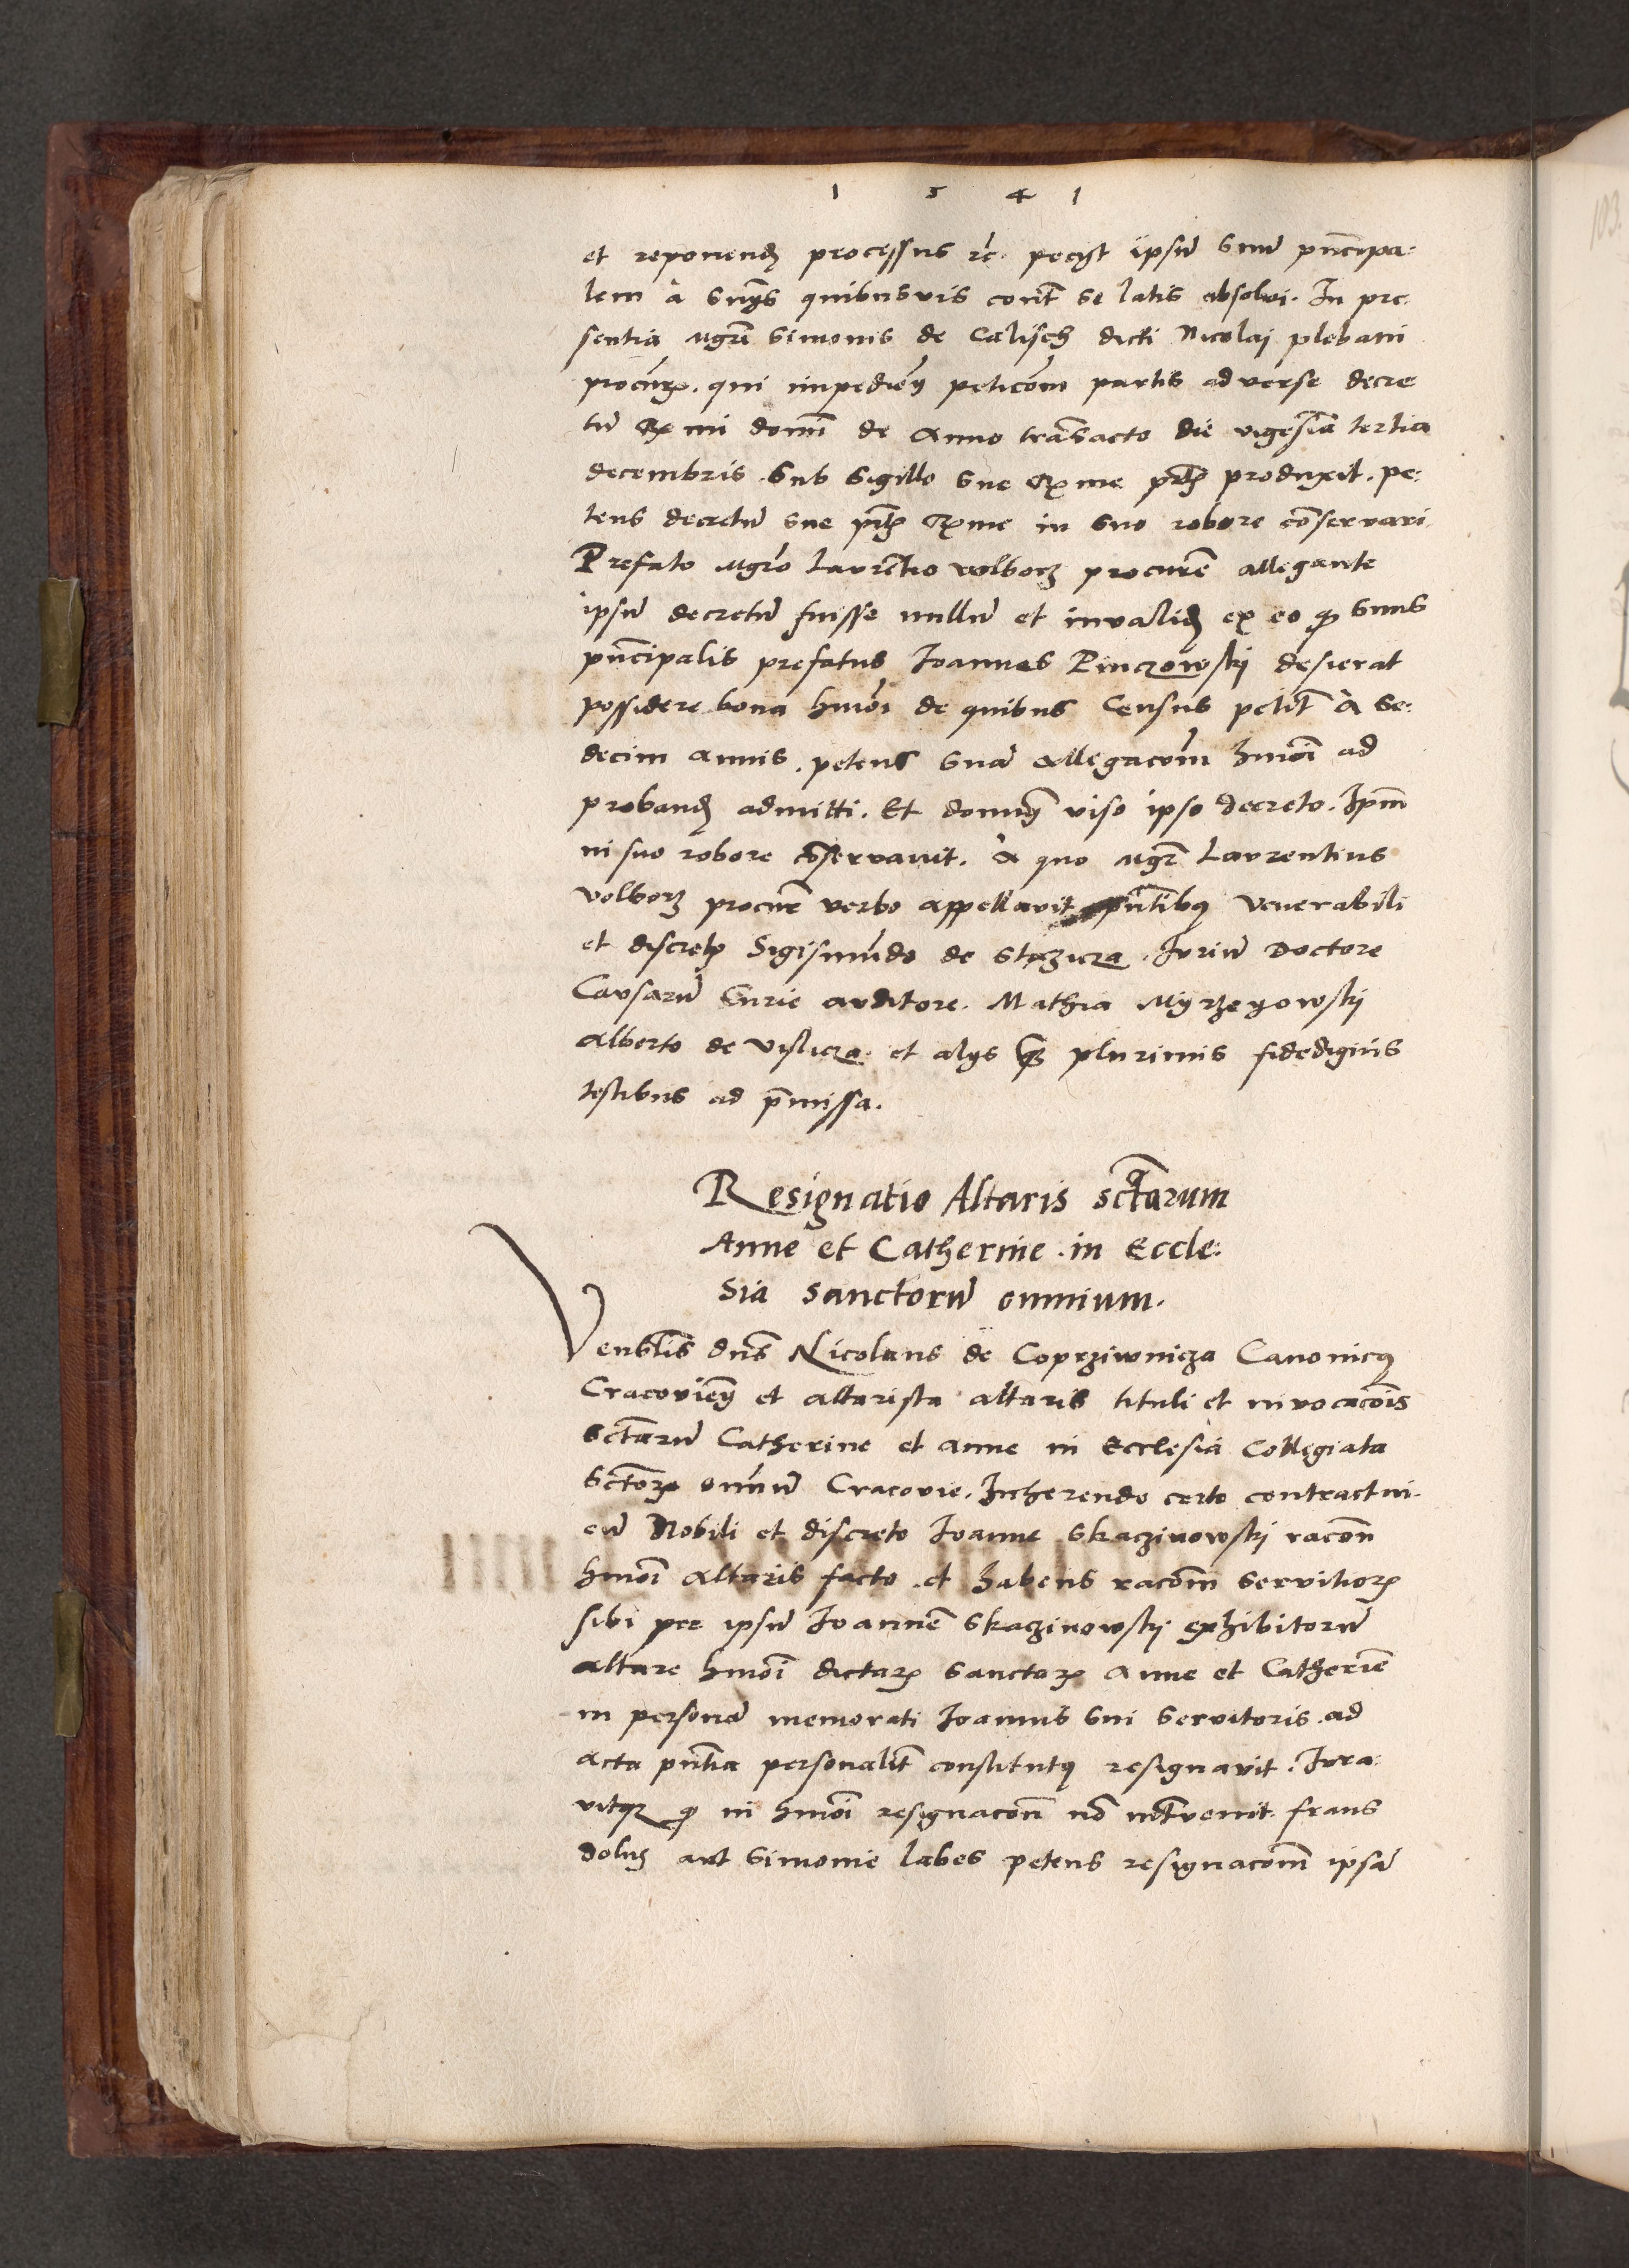 1 5 4 1
et reponend processus rc. pecyt ipsu suu pncipa:
lem a snys quibusvis cont se latis absolvi. In pre:
sentia mgri Simonis de Calisch dicti Nicolaj plebani
procur. qui impedien peticom partis adverse decre
tu Rmi domi de Anno transacto die vigesia tertia
decembris sub sigillo sue Rme prt produxit. pe:
tens decretu sue prt Rme in suo robore coservari
Prefato mgro Laurentio volborz procure allegante
ipsu decretu fuisse nullu et invalid ex eo q suus
pncipalis prefatus Joannes Pinczowskj desierat
possidere bona hmoi de quibus Census petit A se:
decim annis. petens sua Allegacom hmoi ad
proband admitti. Et domin viso ipso decreto. Ipm
in suo robore coservavit. A quo mgr Laurentius
volborz procure verbo appellavit pntibus Venerabili
et discret Sigismudo de Stezicza Juriu Doctore
Causaru Curie auditore. Mathia Myrzeyowskj
Alberto de Vislicza et alys q plurimis fidedignis
testibus ad pmissa.
Resignatio Altaris sctarum
Anne et Catherine in Eccle:
sia sanctoru omnium.
Venblis dns Nicolaus de Coprziwnicza Canonicus
Cracovien et altarista altaris tituli et invocacois
sctaru Catherine et Anne in Ecclesia Collegiata
sctor omniu Cracovie. Inherendo certo contractui
cu Nobili et discreto Joanne Skaczinowskj racon
hmoi Altaris facto et habens racom servitior
sibi per ipsu Joanne Skaczinowskj exhibitoru
altare hmoi dictar sanctar Anne et Catherie
in persona memorati Joannis sui servitoris ad
acta pntia personalit constitutus resignavit. Jura:
vitque q in hmoi resignacon no intvenit fraus
dolus aut simonie labes petens resignacom ipsa